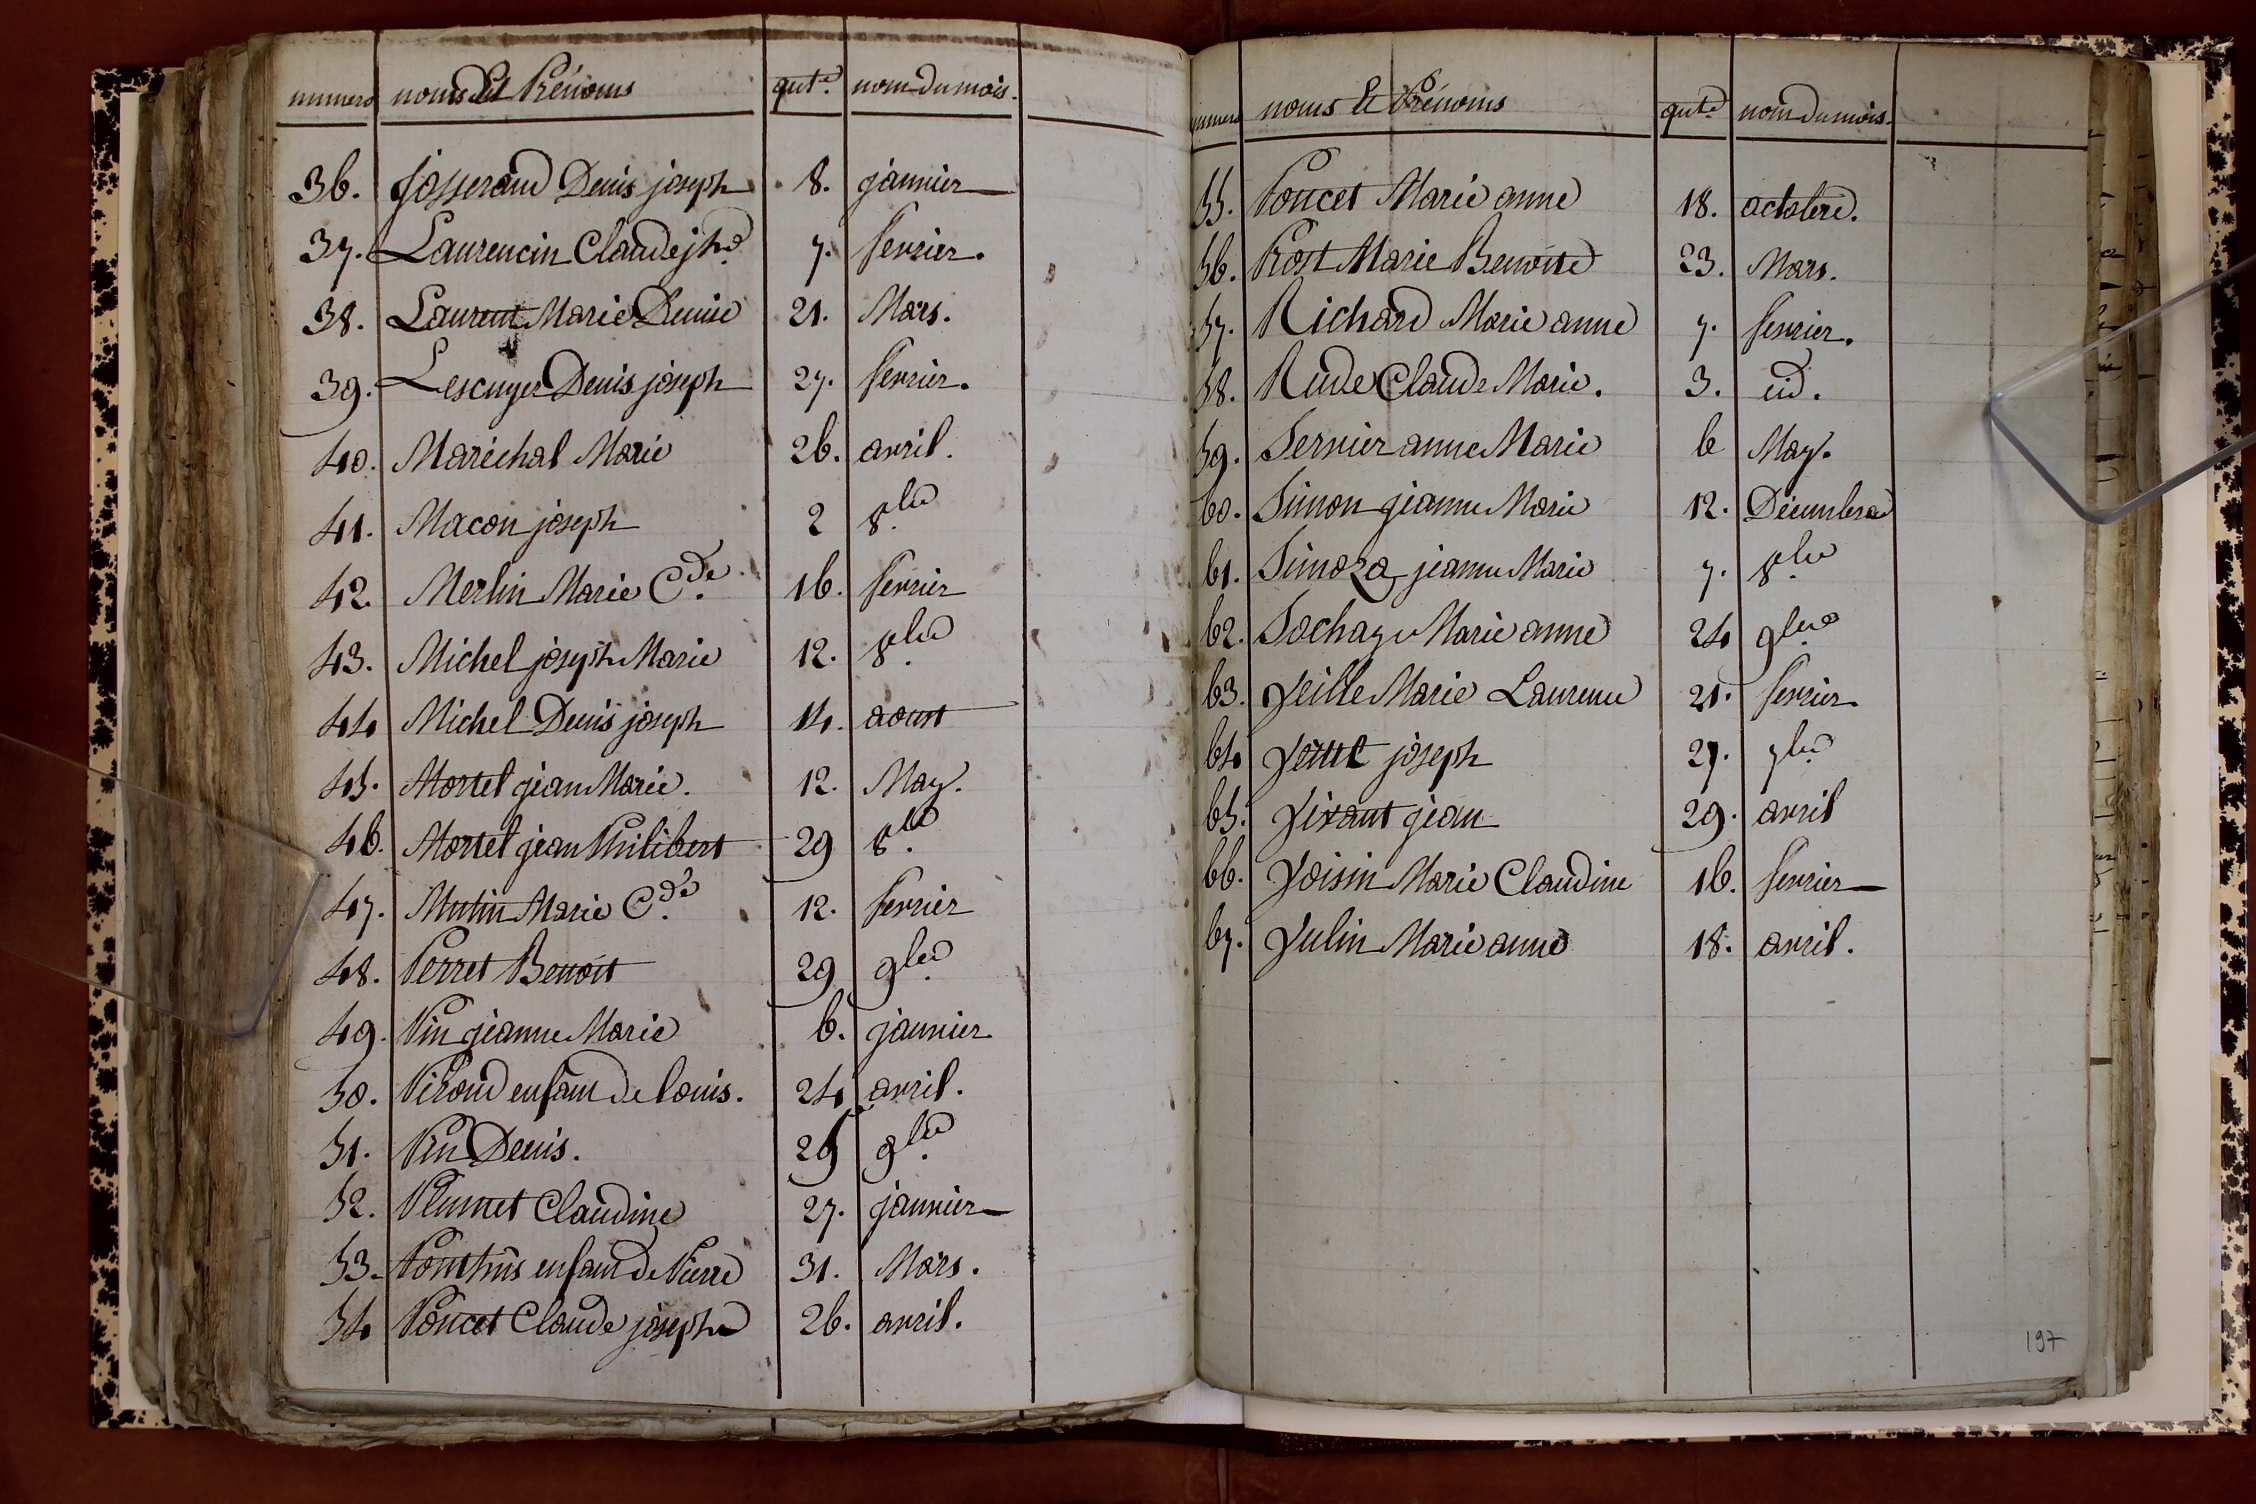 numero noms Et Prénoms qute. nom du mois.
36. Josserand Denis joseph 8. janvier
37. Laurencin Claude jhe 7. fevrier.
38. Laurent Marie Denise 21. Mars.
39. Lescuyer Denis joseph 27. fevrier.
40. Maréchal Marie 26. avril.
41. Macon joseph 2 8bre
42. Merlin Marie Cde. 16. fevrier
43. Michel joseph Marie 12. 8bre
44 Michel Denis joseph 14. aoust
45. Mortel jean Marie. 12. May.
46. Mortel jean Philibert 29 8bre
47. Mutin Marie Cde. 12. fevrier
48. Perret Benoit 29 9bre
49. Pin jeanne Marie 6. janvier
50. Piroud enfant de louis. 24 avril.
51. Pin Denis. 29 9bre
52. Plumet Claudine 27. janvier
53. Ponthus enfant de Pierre 31. Mars.
54 Poncet Claude joseph 26. avril.
numero noms Et Prénoms qute nom du mois.
55. Poncet Marie anne 18. octobre.
56. Prost Marie Benoite 23. Mars.
57. Richard Marie anne 7. fevrier.
58. Rude Claude Marie. 3. id.
59. Servier anne Marie 6 May.
60. Simon jeanne Marie 12. Décembre
61. Simon jeanne Marie 7. 8bre
62. Sochay Marie anne 24 9bre
63. Veille Marie Laurence 21. fevrier
64 joseph 27. 7bre
65. jean 29. avril
66. Voisin Marie Claudine 16. fevrier
67. Vulin Marie anne 18. avril.
197